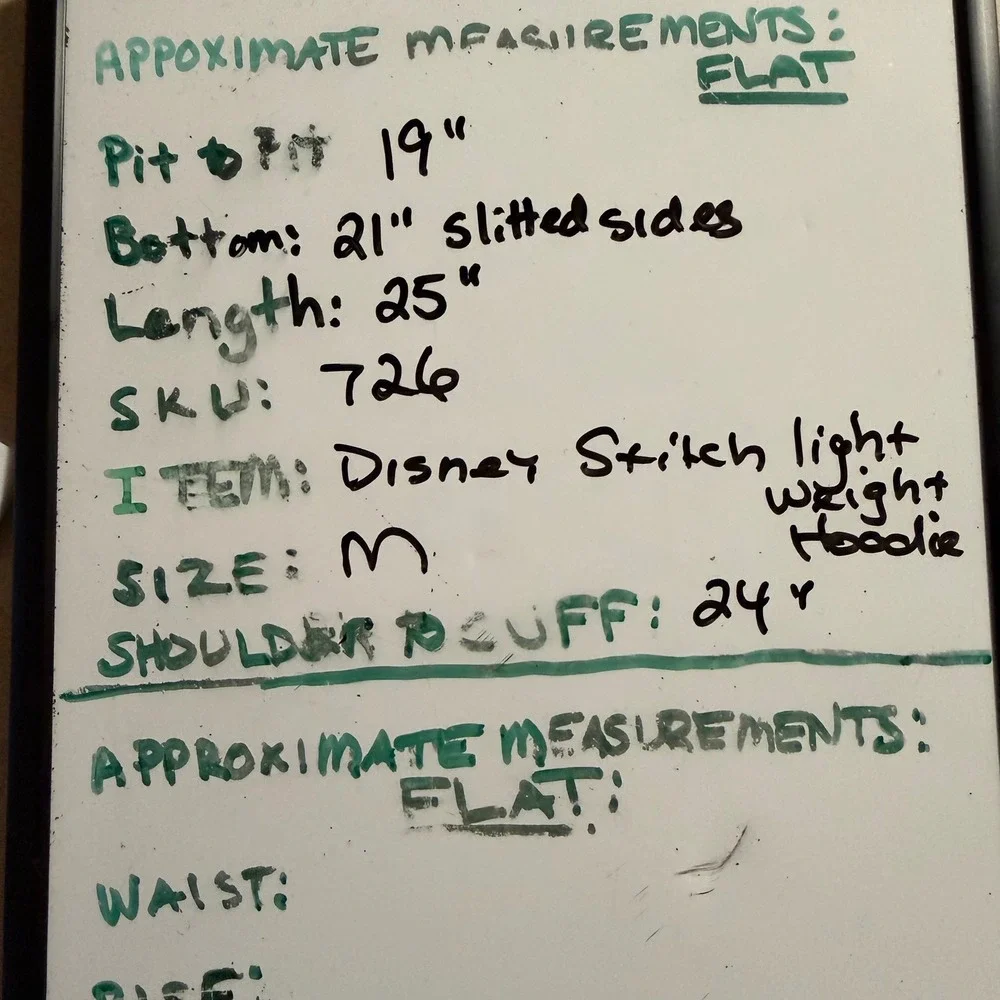 APPOXIMATE MEASUREMENTS:
FLAT
Pit to Pit 19"
Bottom: 21" slitted sides
Length: 25"
SKU: 726
ITEM: Disney Stitch light
weight
Hoodie
SIZE: M
SHOULDER TO CUFF: 24"
APPROXIMATE MEASUREMENTS:
FLAT:
WAIST:
RISE: